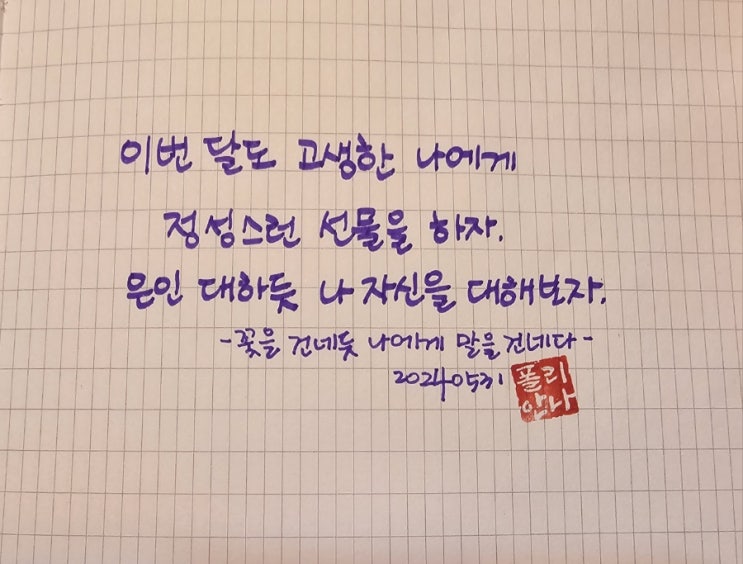 이번 달도 고생한 나에게
정성스런 선물을 하자.
은인 대하듯 나 자신을 대해보자.
-꽃을 건네듯 나에게 말을 건네다-
20240531
폴리
안나